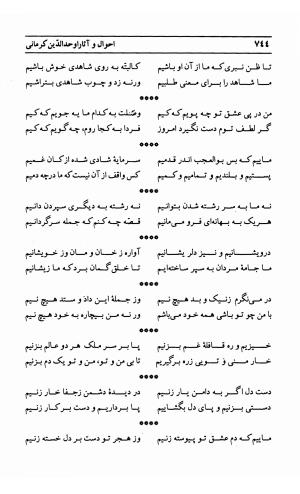 ۷۴٤ احوال و آثار اوحدالدّین کرمانی
تا ظن نبری که ما از آن او باشیم کالیته به روی شاهدی خوش باشیم
ما شاهد را برای معنی طلبیم ورنه زد و چوب شاهدی بتراشیم
****
من در پی عشق تو چه پویم که کیم وصلت به کدام مایه جویم که کیم
گر لطف توم دست نگیرد امروز فردا به کجا روم، چه گویم که کیم
****
ماییم که بس بوالعجب اندر قدمیم سرمایهٔ شادی شده از کان غمیم
پستیم و بلندیم و تمامیم و کمیم کس واقف از آن نیست که ما در چه دمیم
****
نه ما به سر رشته شدن بتوانیم نه رشته به دیگری سپردن دانیم
هر یک به بهانه‌ای فرو می‌مانیم قصّه چه کنم که جمله سرگردانیم
****
درویشانیم و نیز دلریشانیم آواره ز خان و مان وز خویشانیم
ما جامهٔ مردان به سپر ساخته‌ایم تا خلق گمان برد که ما زیشانیم
****
در می‌نگرم زنیک و بد هیچ نیم وز جملهٔ این داد و ستد هیچ نیم
با من چو تو باشی همه خود می‌باشم ور نه من بیچاره به خود هیچ نیم
****
خیزیم و ره قافلهٔ غم بزنیم پا بر سر ملک هر دو عالم بزنیم
خار منی ز تویی زره برگیریم تا بی من و تو، من و تو یک دم بزنیم
****
دست دل اگر به دامن یار زنیم در دیدهٔ دشمن زجفا خار زنیم
دستی بزنیم و پای دل بگشاییم پا برداریم و دست بر کار زنیم
****
ماییم که دم عشق تو پیوسته زنیم وز هجر تو دست بر دل خسته زنیم